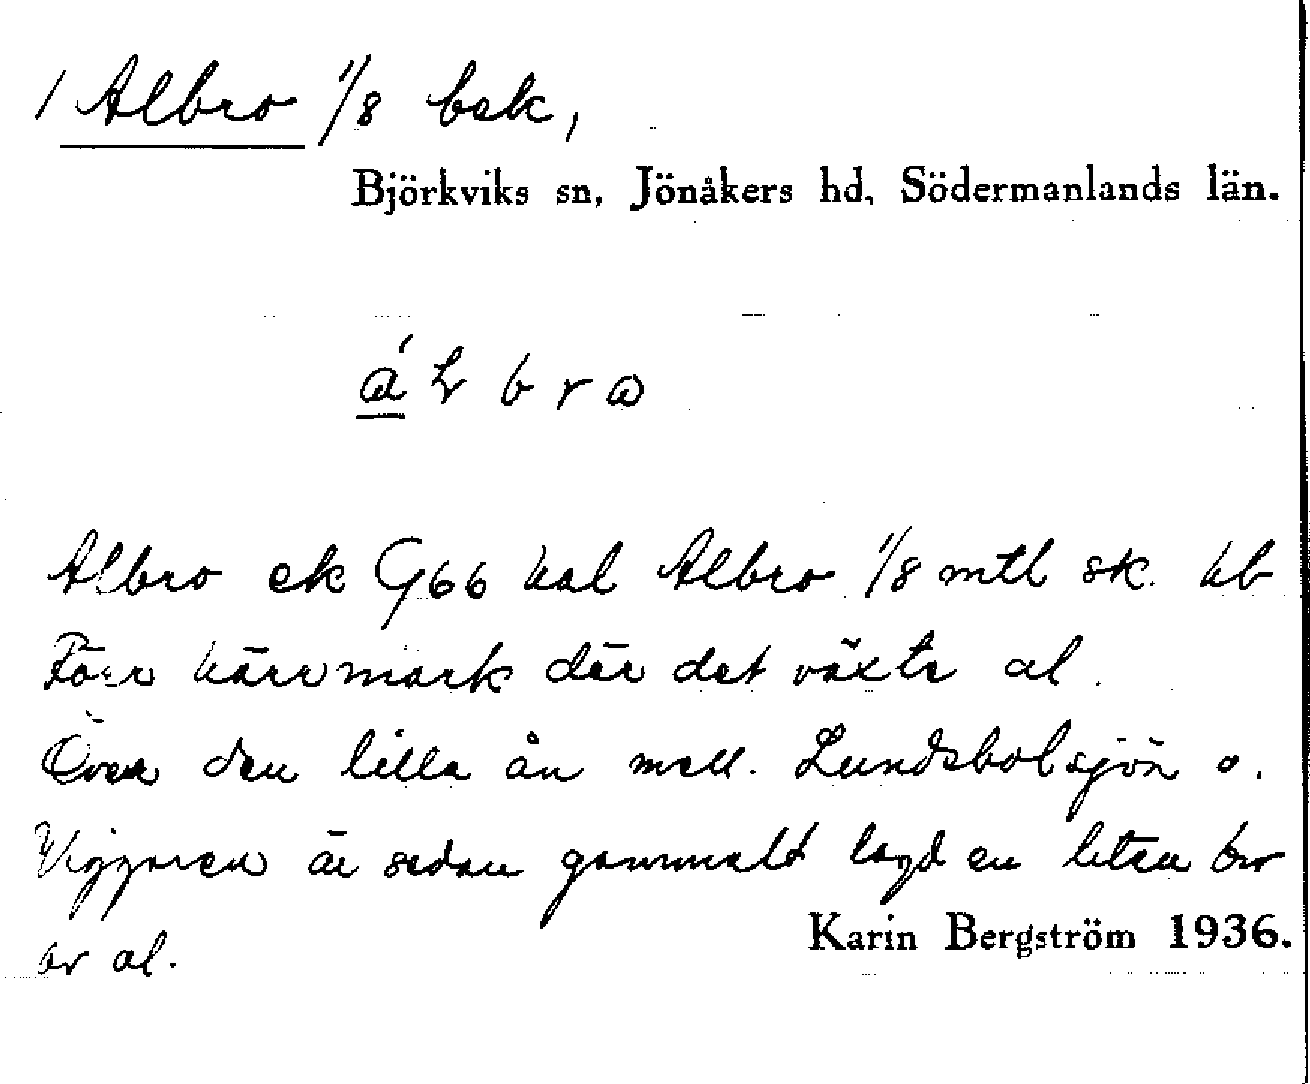 1 Albro 1/8 bsk,
Björkviks sn, Jönåkers hd, Södermanlands län.
Albro ek G66 kal Albro 1/8 mtl sk.
Förr kärrmark där det växte al.
Över den lilla ån mell. Lundsbolsjön o.
är sedan gammalt lagd en liten bro
av al.
Karin Bergström 1936.